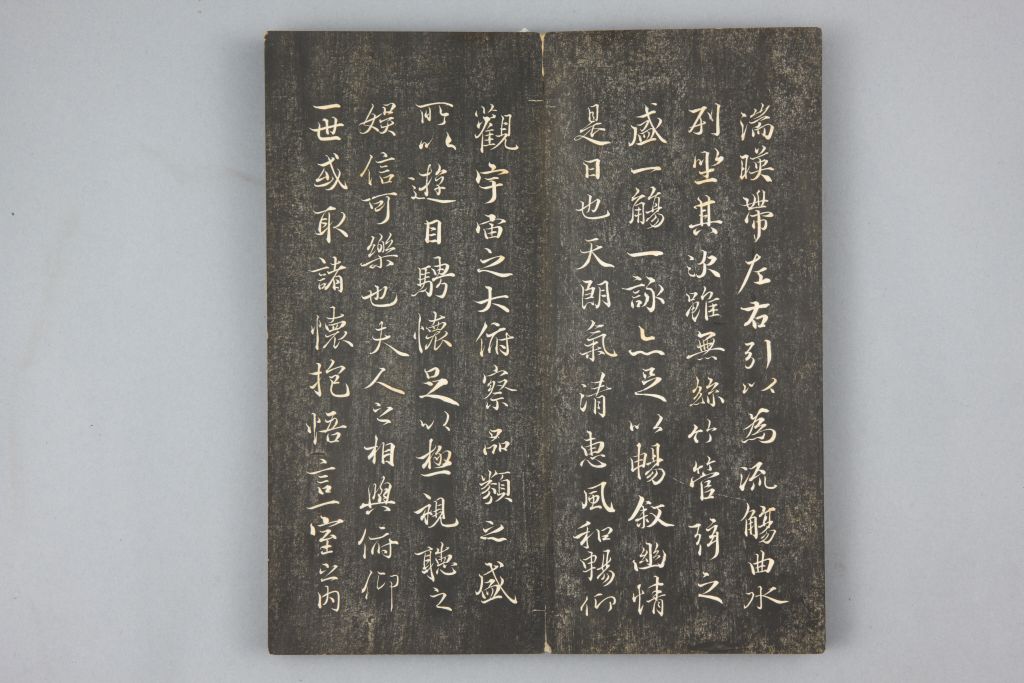 湍暎帶左右引以為流觴曲水
列坐其次雖無絲竹管弦之
盛一觴一詠亦足以暢敘幽情
是日也天朗氣清惠風和暢仰
觀宇宙之大俯察品類之盛
所以遊目騁懷足以極視聽之
娛信可樂也夫人之相與俯仰
一世或取諸懷抱悟言一室之內